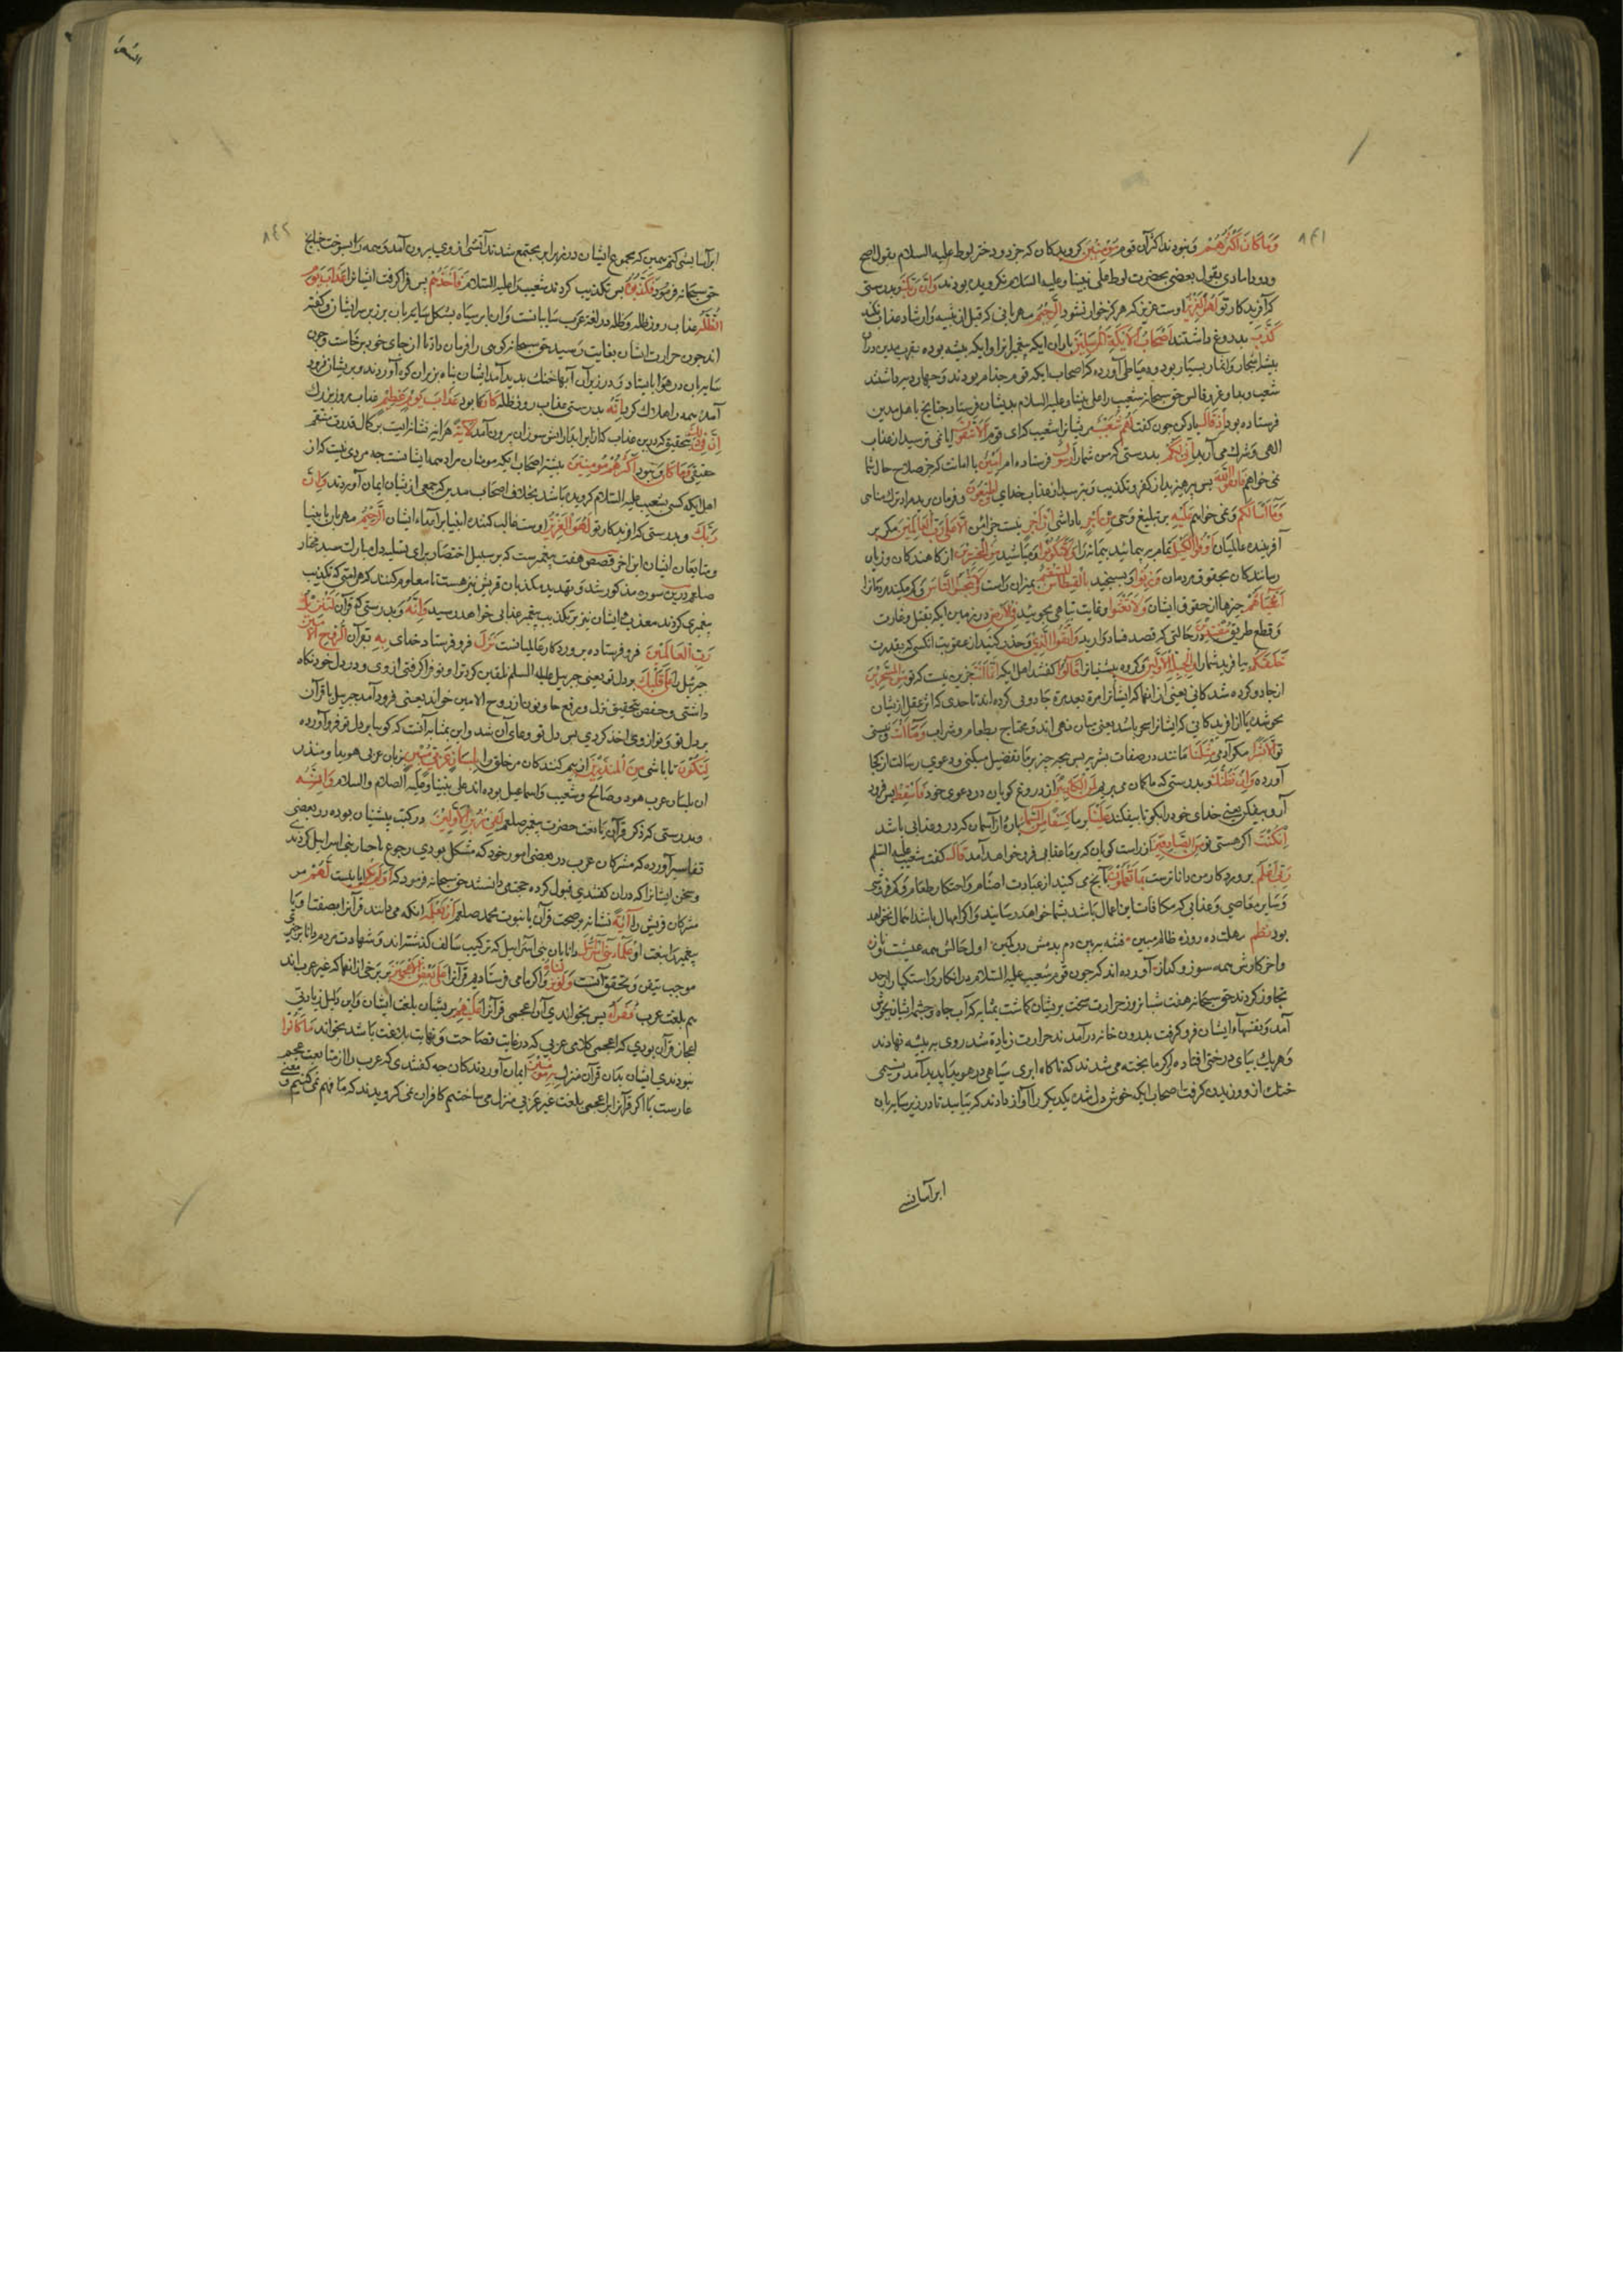 وَمَا كَانَ اَكْثَرُهُمْ ونبودند اكثر آن قوم مُؤْمِنِينَ كرويدكان كه جز دو دختر لوط عليه السلام بقول اصح
ودو داماد وى بقول بعضى بحضرت لوط على نبينا وعليه السلام نكرويده بودند وَاِنَّ رَبَّكَ وبدرستى
كه آفريدكار تو لَهُوَ الْعَزِيزُ اوست عزيز كه هركز خوار نشود الرَّحِيمُ مهربانى كه قبل از تنبيه وارشاد عذاب نكند
كَذَّبَ بدروغ داشتند اَصْحَابُ الْاَيْكَةِ الْمُرْسَلِينَ ياران ايكه پيغمبرانرا وايكه بيشه بوده بقرب مدين دران
بيشه اشجار واثمار بسيار بود ودمياطى آورده كه اصحاب ايكه قوم جذام بودند وچهار در داشتند
شعيب وحق سبحانه شعيب را على نبينا وعليه السلام بديشان فرستاد چنانچ باهل مدين
فرستاده بود اِذْ قَالَ ياد كن چون كفت لَهُمْ شُعَيْبٌ مريشانرا شعيب كه اى قوم اَلَا تَتَّقُونَ آيا نمى ترسيد از عذاب
الهى وشرك مى آريد اِنِّى لَكُمْ بدرستى كه من شمارا رَسُولٌ فرستاده ام اَمِينٌ با امانت كه جز صلاح حال شما
نمى خواهم فَاتَّقُوا اللَّهَ پس بپرهيزيد از كفر وتكذيب وبترسيد از عذاب خداى وَاَطِيعُونِ وفرمان بريد مرا در ترك مناهى
وَمَا اَسْئَلُكُمْ ونمى خواهم عَلَيْهِ بر تبليغ وحى مِنْ اَجْرٍ پاداشى اِنْ اَجْرِىَ نيست جزاى من اِلَّا عَلَى رَبِّ الْعَالَمِينَ مكر بر
آفريننده عالميان اَوْفُوا الْكَيْلَ تمام بپيماييد پيمانه را وَلَا تَكُونُوا ومباشيد مِنَ الْمُخْسِرِينَ از كاهندكان وزيان
رسانندكان بحقوق مردمان وَزِنُوا وبسنجيد بِالْقِسْطَاسِ الْمُسْتَقِيمِ بميزان راست وَلَا تَبْخَسُوا النَّاسَ وكم مكنيد مردمانرا
اَشْيَاءَهُمْ چيزها از حقوق ايشان وَلَا تَعْثَوْا وغايت تباهى مجوييد فِى الْاَرْضِ در زمين ايكه بقتل وغارت
وقطع طريق مُفْسِدِينَ در حالتى كه قصد فساد داريد وَاتَّقُوا الَّذِى وحذر كنيد از عقوبت آنكسى كه بقدرت
خَلَقَكُمْ بيافريد شمارا وَالْجِبِلَّةَ الْاَوَّلِينَ وكروه پيشينيانرا قَالُوا كفتند اهل ايكه اِنَّمَا اَنْتَ جزين نيست كه تو مِنَ الْمُسَحَّرِينَ
از جادو كرده شدكانى يعنى از آنها كه ايشانرا مرة بعد مرة جادويى كرده اند تا حدى كه اثر عقل از ايشان
محو شد يا از آفريدكانى كه ايشانرا سحر باشد يعنى ميان تهى اند ومحتاج بطعام وشراب وَمَا اَنْتَ ونيستى
تو اِلَّا بَشَرٌ مكر آدمى مِثْلُنَا مانند ما در صفات بشريه پس بچه چيز بر ما تفضيل ميكنى ودعوى رسالت از كجا
آورده وَاِنْ نَظُنُّكَ وبدرستى كه ما كمان مى بريم لَمِنَ الْكَاذِبِينَ از دروغ كويان در دعوى خود فَاَسْقِطْ پس فرود
آر وبيفكن يعنى خداى خود را بكو تا بيفكند عَلَيْنَا بر ما كِسَفًا مِنَ السَّمَاءِ پاره از آسمان كه درو عذابى باشد
اِنْ كُنْتَ اكر هستى تو مِنَ الصَّادِقِينَ از راست كويان كه بر ما عذاب فرود خواهد آمد قَالَ كفت شعيب عليه السلم
رَبِّى اَعْلَمُ پروردكار من داناترست بِمَا تَعْمَلُونَ بآنچ مى كنيد از عبادت اصنام واحتكار طعام وكم فروشى
وساير معاصى وعذابى كه مكافات اين اعمال باشد بشما خواهد رسانيد واكر امهال باشد اهمال نخواهد
بود نظم مهلت ده روزه ظالم مبين فتنه ببين دم بدمش در كمين اول حالش همه عيشت وناز
واخر كارش همه سوز وكداز آورده اند كه چون قوم شعيب عليه السلام در انكار واستكبار از حد
تجاوز كردند حق سبحانه هفت شبانروز حرارت سخت بريشان كماشت بمثابه كه آب چاه وچشمه ايشان بجوش
آمد ونفسهاء ايشان فرو كرفت بدرون خانه درآمدند حرارت زياده شد روى به بيشه نهادند
وهر يك بپاى درختى افتاده از كرما پخته مى شدند كه ناكاه ابرى سياهى در هوا پديد آمد ونسيمى
خنك ازو وزيدن كرفت اصحاب ايكه خوش دل شده يكديكر را آواز دادند كه بياييد تا در زير سايبان
ابر آسايشى
٨٤١
ابر آسايشى كنيم همين كه مجموع ايشان در زير ابر مجتمع شدند آتشى از وى بيرون آمد وهمه را بسوخت چنانچ
حق سبحانه فرمود فَكَذَّبُوهُ پس تكذيب كردند شعيب را عليه السلام فَاَخَذَهُمْ پس فرا كرفت ايشانرا عَذَابُ يَوْمِ
الظُّلَّةِ عذاب روز ظله وظله در لغة عرب سايبانست وآن ابر سياه بشكل سايبان بر زبر سر ايشان وكفته
اند چون حرارت ايشان بغايت رسيد حق سبحانه كوهى را فرمان داد تا از جاى خود برخاست وچون
سايبان در هوا بايستاد ودر زير آن آبها خنك پديد آمد ايشان پناه بزير آن كوه آوردند وبريشان فرود
آمده همه را هلاك كرد اِنَّهُ بدرستى عذاب روز ظله كَانَ بود عَذَابَ يَوْمٍ عَظِيمٍ عذاب روز بزرك
اِنَّ فِى ذَلِكَ بتحقيق كه درين عذاب كه از ابر آتش سوزان بيرون آمد لَآيَةً هر آينه نشانه ايست بر كمال قدرت منتقم
حقيقى وَمَا كَانَ ونبود اَكْثَرُهُمْ مُؤْمِنِينَ بيشتر اصحاب ايكه مومنان مراد همه ايشانست چه مروى نيست كه از
اهل ايكه كسى بشعيب عليه السلام كرويده باشد بخلاف اصحاب مدين كه جمعى ازيشان ايمان آوردند وَاِنَّ
رَبَّكَ وبدرستى كه آفريدكار تو لَهُوَ الْعَزِيزُ اوست غالب كننده انبيا بر اعداء ايشان الرَّحِيمُ مهربان بانبيا
ومتابعان ايشان اين آخر قصص هفت پيغمبرست كه بر سبيل اختصار براى تسليه دل مبارك سيد مختار
صلعم درين سوره مذكور شد وتهديد مكذبان قريش نيز هست تا معلوم كنند كه هر امتى كه تكذيب
پيغمبرى كردند معذب شدند وايشان نيز بر تكذيب پيغمبر عذابى خواهد رسيد وَاِنَّهُ وبدرستى كه قرآن لَتَنْزِيلُ
رَبِّ الْعَالَمِينَ فرو فرستاده پروردكار عالميانست نَزَلَ فرو فرستاد خداى بِهِ بقرآن الرُّوحُ الْاَمِينُ
جبرئيل را عَلَى قَلْبِكَ بر دل تو يعنى جبريل عليه السلم تلقين كرد ترا وتو فرا كرفتى از وى ودر دل خود نكاه
داشتى وحفص بتخفيف نزل وبرفع حا ونون از روح الامين خواند يعنى فرود آمد جبريل با قرآن
بر دل تو وتو از وى اخذ كردى پس دل تو وعاى آن شد واين بمثابه آنست كه كوييا بر دل تو فرو آورده
لِتَكُونَ تا باشى مِنَ الْمُنْذِرِينَ از بيم كنندكان مر خلق را بِلِسَانٍ عَرَبِىٍّ مُبِينٍ بزبان عربى هويدا ومنذر
ان بلسان عرب هود وصالح وشعيب واسماعيل بوده اند على نبينا وعليهم الصلاة والسلام وَاِنَّهُ
وبدرستى كه ذكر قرآن يا نعت حضرت پيغمبر صلعم لَفِى زُبُرِ الْاَوَّلِينَ در كتب پيشينيان بوده در بعضى
تفاسير آورده كه مشركان عرب در بعضى امور خود كه مشكل بودى رجوع باحبار بنى اسرايل كردندى
وسخن ايشانرا كه دران كفتندى قبول كرده حجت مى دانستند حق سبحانه فرمود كه اَوَلَمْ يَكُنْ آيا نيست لَهُمْ مر
مشركان قريش را آيَةً نشانه بر صحت قرآن يا نبوت محمد صلعم اَنْ يَعْلَمَهُ آنكه مى دانند قرآنرا بصفتها ويا
پيغمبر را بنعت او عُلَمَاءُ بَنِى اِسْرَائِيلَ دانايان بنى اسرايل كه در كتب سالف كذشته اند وشهادت مردم دانا بر چيزى
موجب تيقن وتحقق آنست وَلَوْ نَزَّلْنَاهُ واكر ما مى فرستاديم قرآنرا عَلَى بَعْضِ الْاَعْجَمِينَ بر برخى از آنها كه غير عرب اند
هم بلغت عرب فَقَرَاَهُ پس بخواندى آن اعجمى قرآنرا عَلَيْهِمْ بريشان بلغت ايشان واين دليل زيادتى
اعجاز قرآن بودى كه اعجمى كلامى عربى كه در غايت فصاحت ونهايت بلاغت باشد بخواند مَا كَانُوا
نبودندى ايشان بدان قرآن منزل بِهِ مُؤْمِنِينَ ايمان آوردندكان چه كفتندى كه عرب را از متابعت عجم
عارست يا اكر قرآنرا بر اعجمى بلغت غير عربى منزل مى ساختيم كافران نمى كرويدند كه ما فهم نمى كنيم ومعنى
٨٤٢